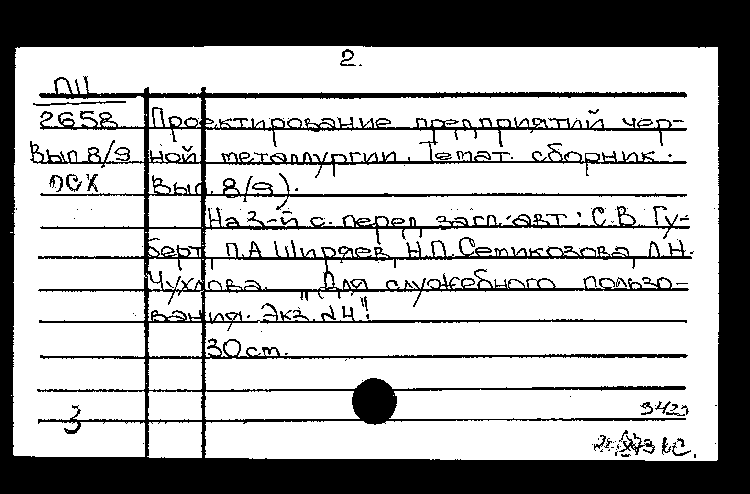 2.
П11
2658 Проектирование предприятий чер-
Вып.8/9 ной металлургии. Темат. сборник.
ОСХ Вып. 8/9).
На 3-й с. перед загл. авт: С.В. Гу-
берт, П.А Ширяев, Н.П. Семикозова, Л.Н.
Чухлова. "Для служебного пользо-
вания. Экз. №4".
30 cm.
3